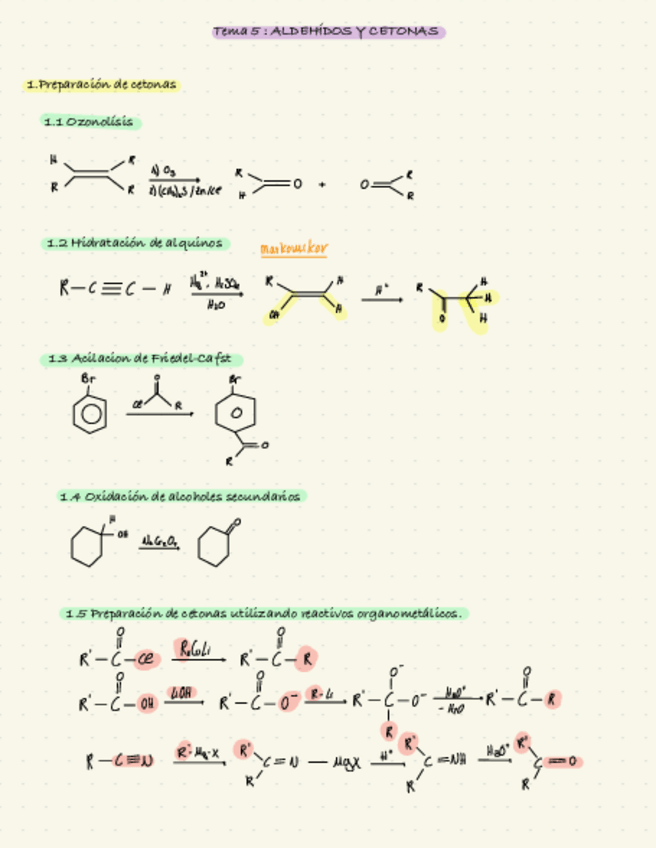 Tema 5 : ALDEHÍDOS Y CETONAS
1.Preparación de cetonas
1.1 Ozonolísis
H R R R 1) O3 2)(CH3)2S/Zn/ce R H O + O R R
1.2 Hidratación de alquinos
markovnikov
R-C≡C-H Hg2+, H2SO4 H2O R H OH H H+ R O H H H
1.3 Acilacion de Friedel-Cafst
Br O Cl R Br O R
1.4 Oxidación de alcoholes secundarios
H OH Na2Cr2O7 O
1.5 Preparación de cetonas utilizando reactivos organometálicos.
R'-C-Cl O R2CuLi R'-C-R O
R'-C-OH O LiOH R'-C-O- O R-Li R'-C-O- O- R H3O+ -H2O R'-C-R O
R-C≡N R'-Mg-X R' C=N-MgX R' H+ R' C=NH R H3O+ R' C=O R